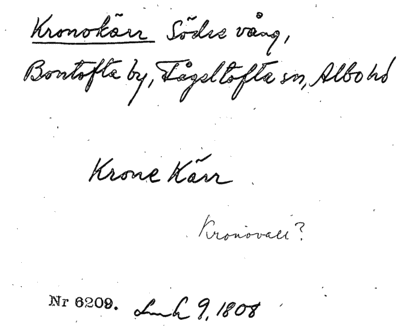 Kronokärr Södre vång,
Bontofta by, Fågeltofta sn, Albo hd
Krone Kärr
Kronovall?
Nr 6209. Lmh 9, 1808